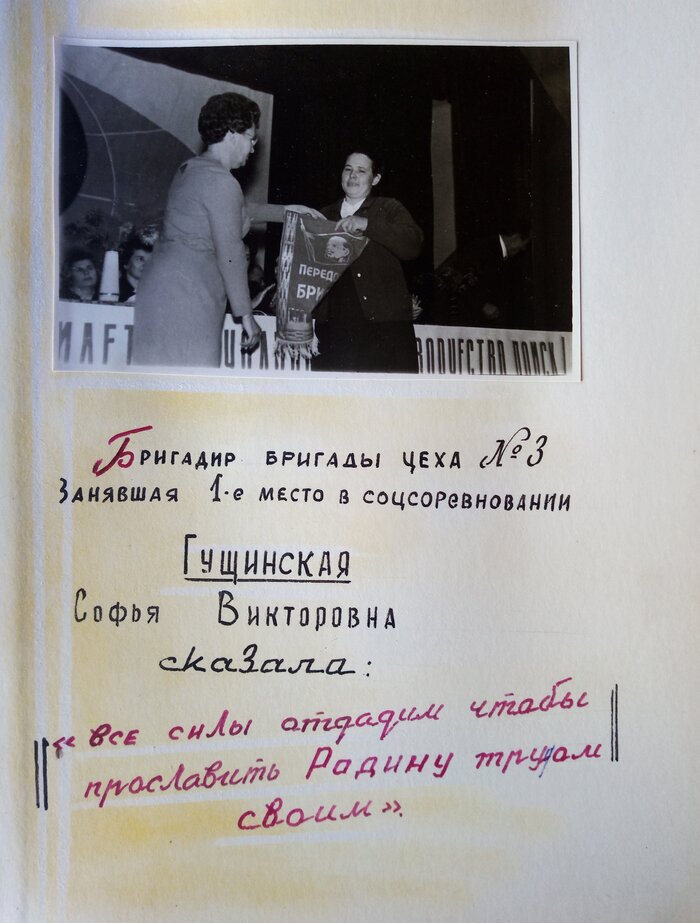 ПЕРЕДО
БРИ
ВОДЧЕСТВА ПОИСК!
Бригадир бригады цеха №3
Занявшая 1-е место в соцсоревновании
Гущинская
Софья Викторовна
сказала:
«все силы отдадим чтобы
прославить Родину трудом
своим».